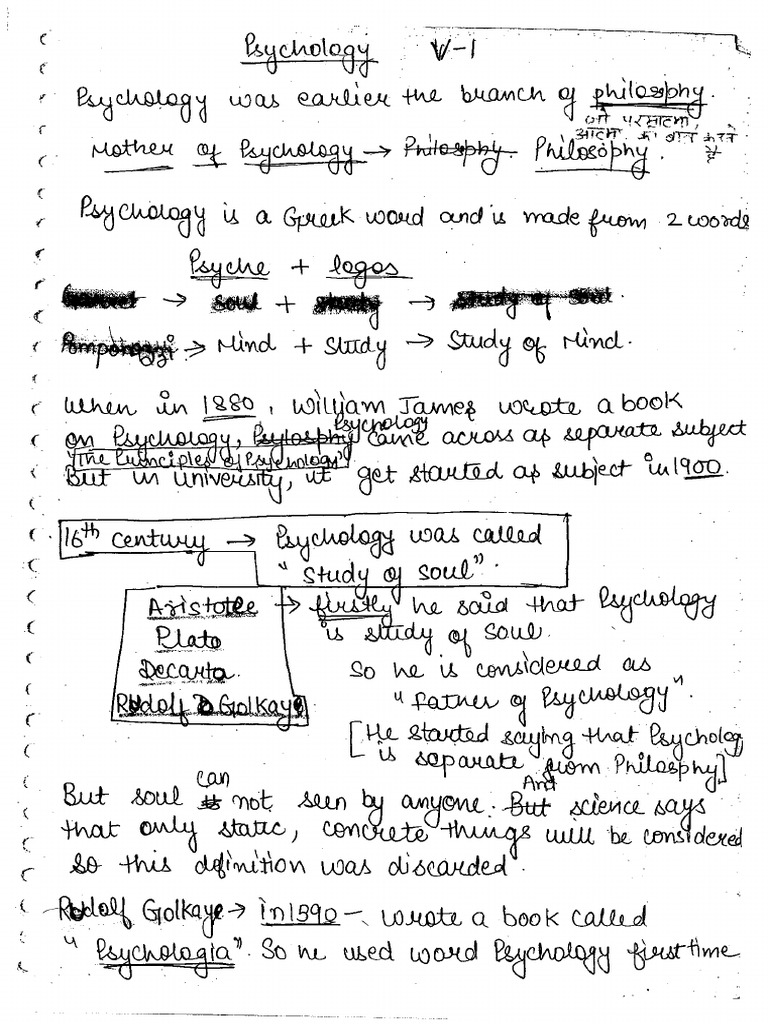 Psychology V-1
Psychology was earlier the branch of philosphy.
जो परमात्मा,
आत्मा की बातें करते
है
Mother of Psychology → Philosphy. Philosophy.
Psychology is a Greek word and is made from 2 words
Psyche + logos
→ soul + study → study of soul.
→ Mind + Study → Study of Mind.
When in 1880, William James wrote a book
Psychology
on Psychology, came across as separate subject
"The Principles of Psychology"
But in University, it get started as subject in 1900.
16th century → Psychology was called
"study of soul".
Aristotle → firstly he said that Psychology
is study of soul.
Plato
Decarta.
So he is considered as
Rudolf Golkaye
"Father of Psychology".
[He started saying that Psycholog
is separate from Philosphy]
can And
But soul not seen by anyone. But science says
that only static, concrete things will be considered
so this definition was discarded.
Rudolf Golkaye → in 1590 - wrote a book called
"Psychologia". So he used word Psychology first time